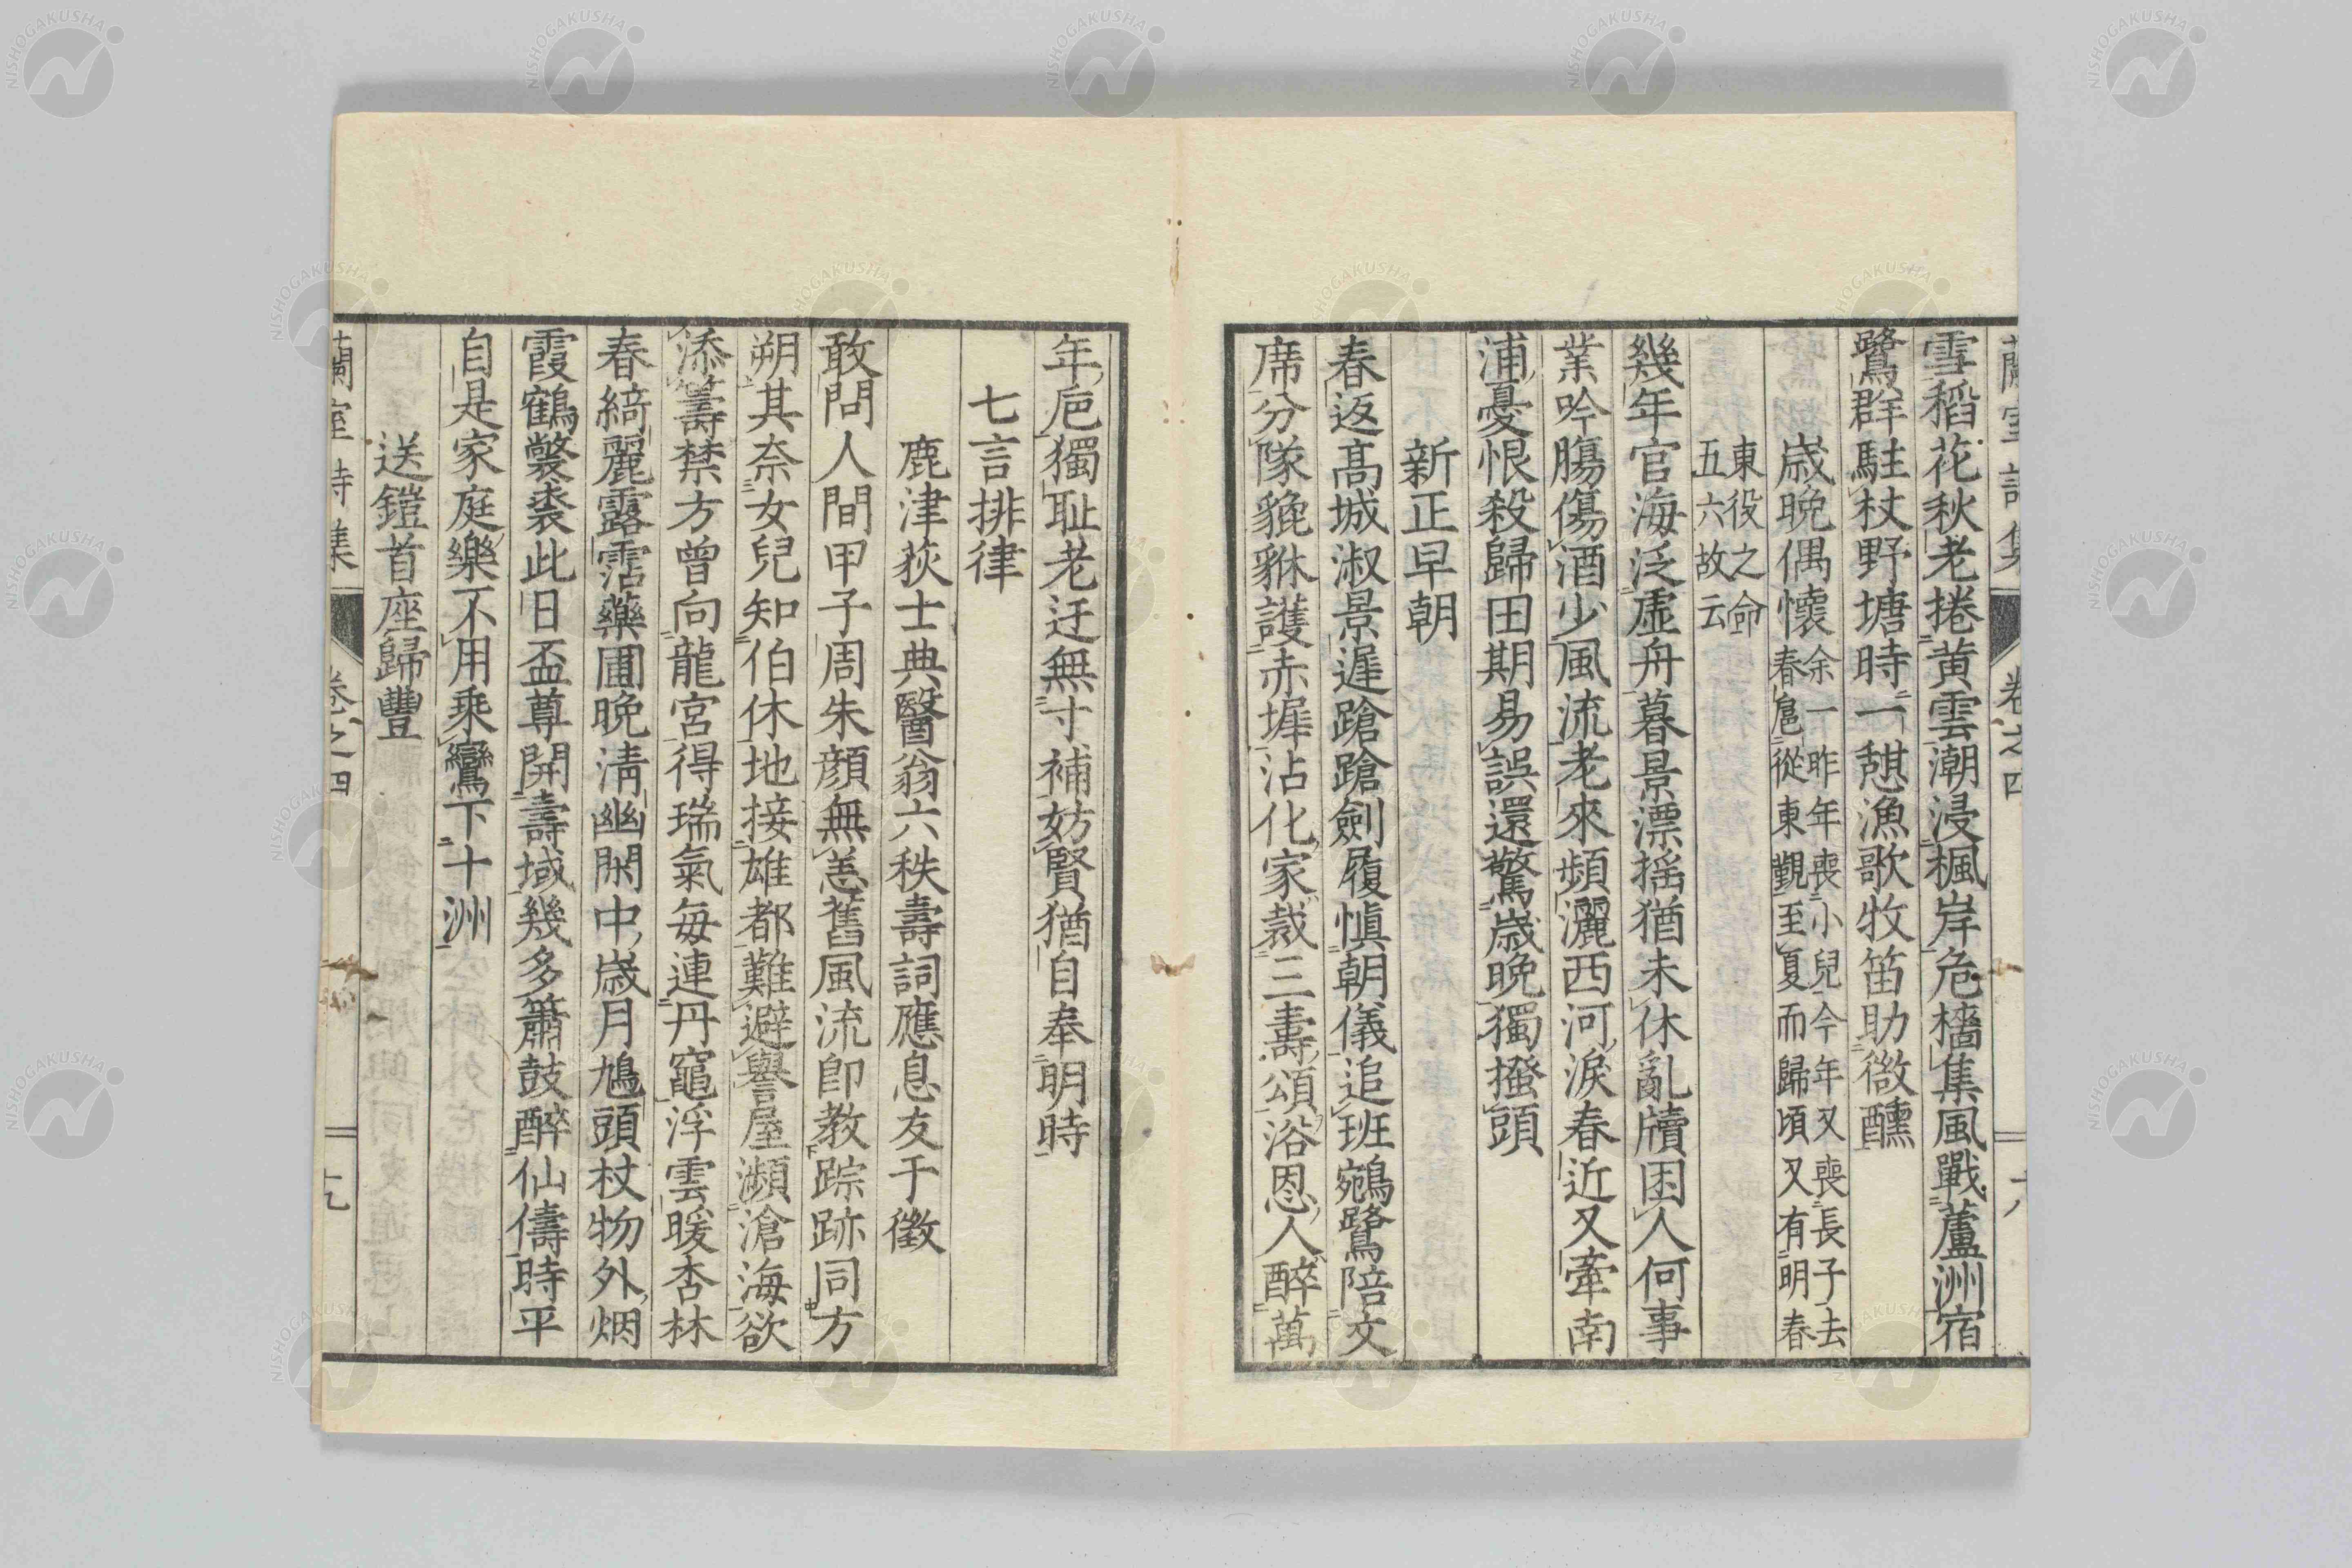 蘭室詩集 卷之四 十八
雪稻花秋老捲黄雲潮浸楓岸危檣集風戰蘆洲宿
鷺群駐杖野塘時一憩漁歌牧笛助微醺
歲晚偶懷
余一昨年喪小兒今年又喪長子去
春扈從東覲至夏而歸頃又有明春
東役之命
五六故云
幾年官海泛虛舟暮景漂揺猶未休亂牘困人何事
業吟膓傷酒少風流老來頻灑西河淚春近又牽南
浦憂恨殺歸田期易誤還驚歲晚獨搔頭
新正早朝
春返髙城淑景遲蹌蹌劍履愼朝儀追班鵷鷺陪文
席分隊貔貅護赤墀沾化家裁三壽頌浴恩人醉萬
年巵獨耻老迂無寸補妨賢猶自奉明時
七言排律
鹿津荻士典醫翁六秩壽詞應息友于徵
敢問人間甲子周朱顔無恙舊風流卽教踪跡同方
朔其奈女兒知伯休地接雄都難避譽屋瀕滄海欲
添籌禁方曾向龍宮得瑞氣每連丹竈浮雲暖杏林
春綺麗露霑藥圃晚淸幽閑中歲月鳩頭杖物外烟
霞鶴氅裘此日盃尊開壽域幾多簫鼓醉仙儔時平
自是家庭樂不用乗鸞下十洲
送鎧首座歸豐
蘭室詩集 卷之四 十九
NISHOGAKUSHA